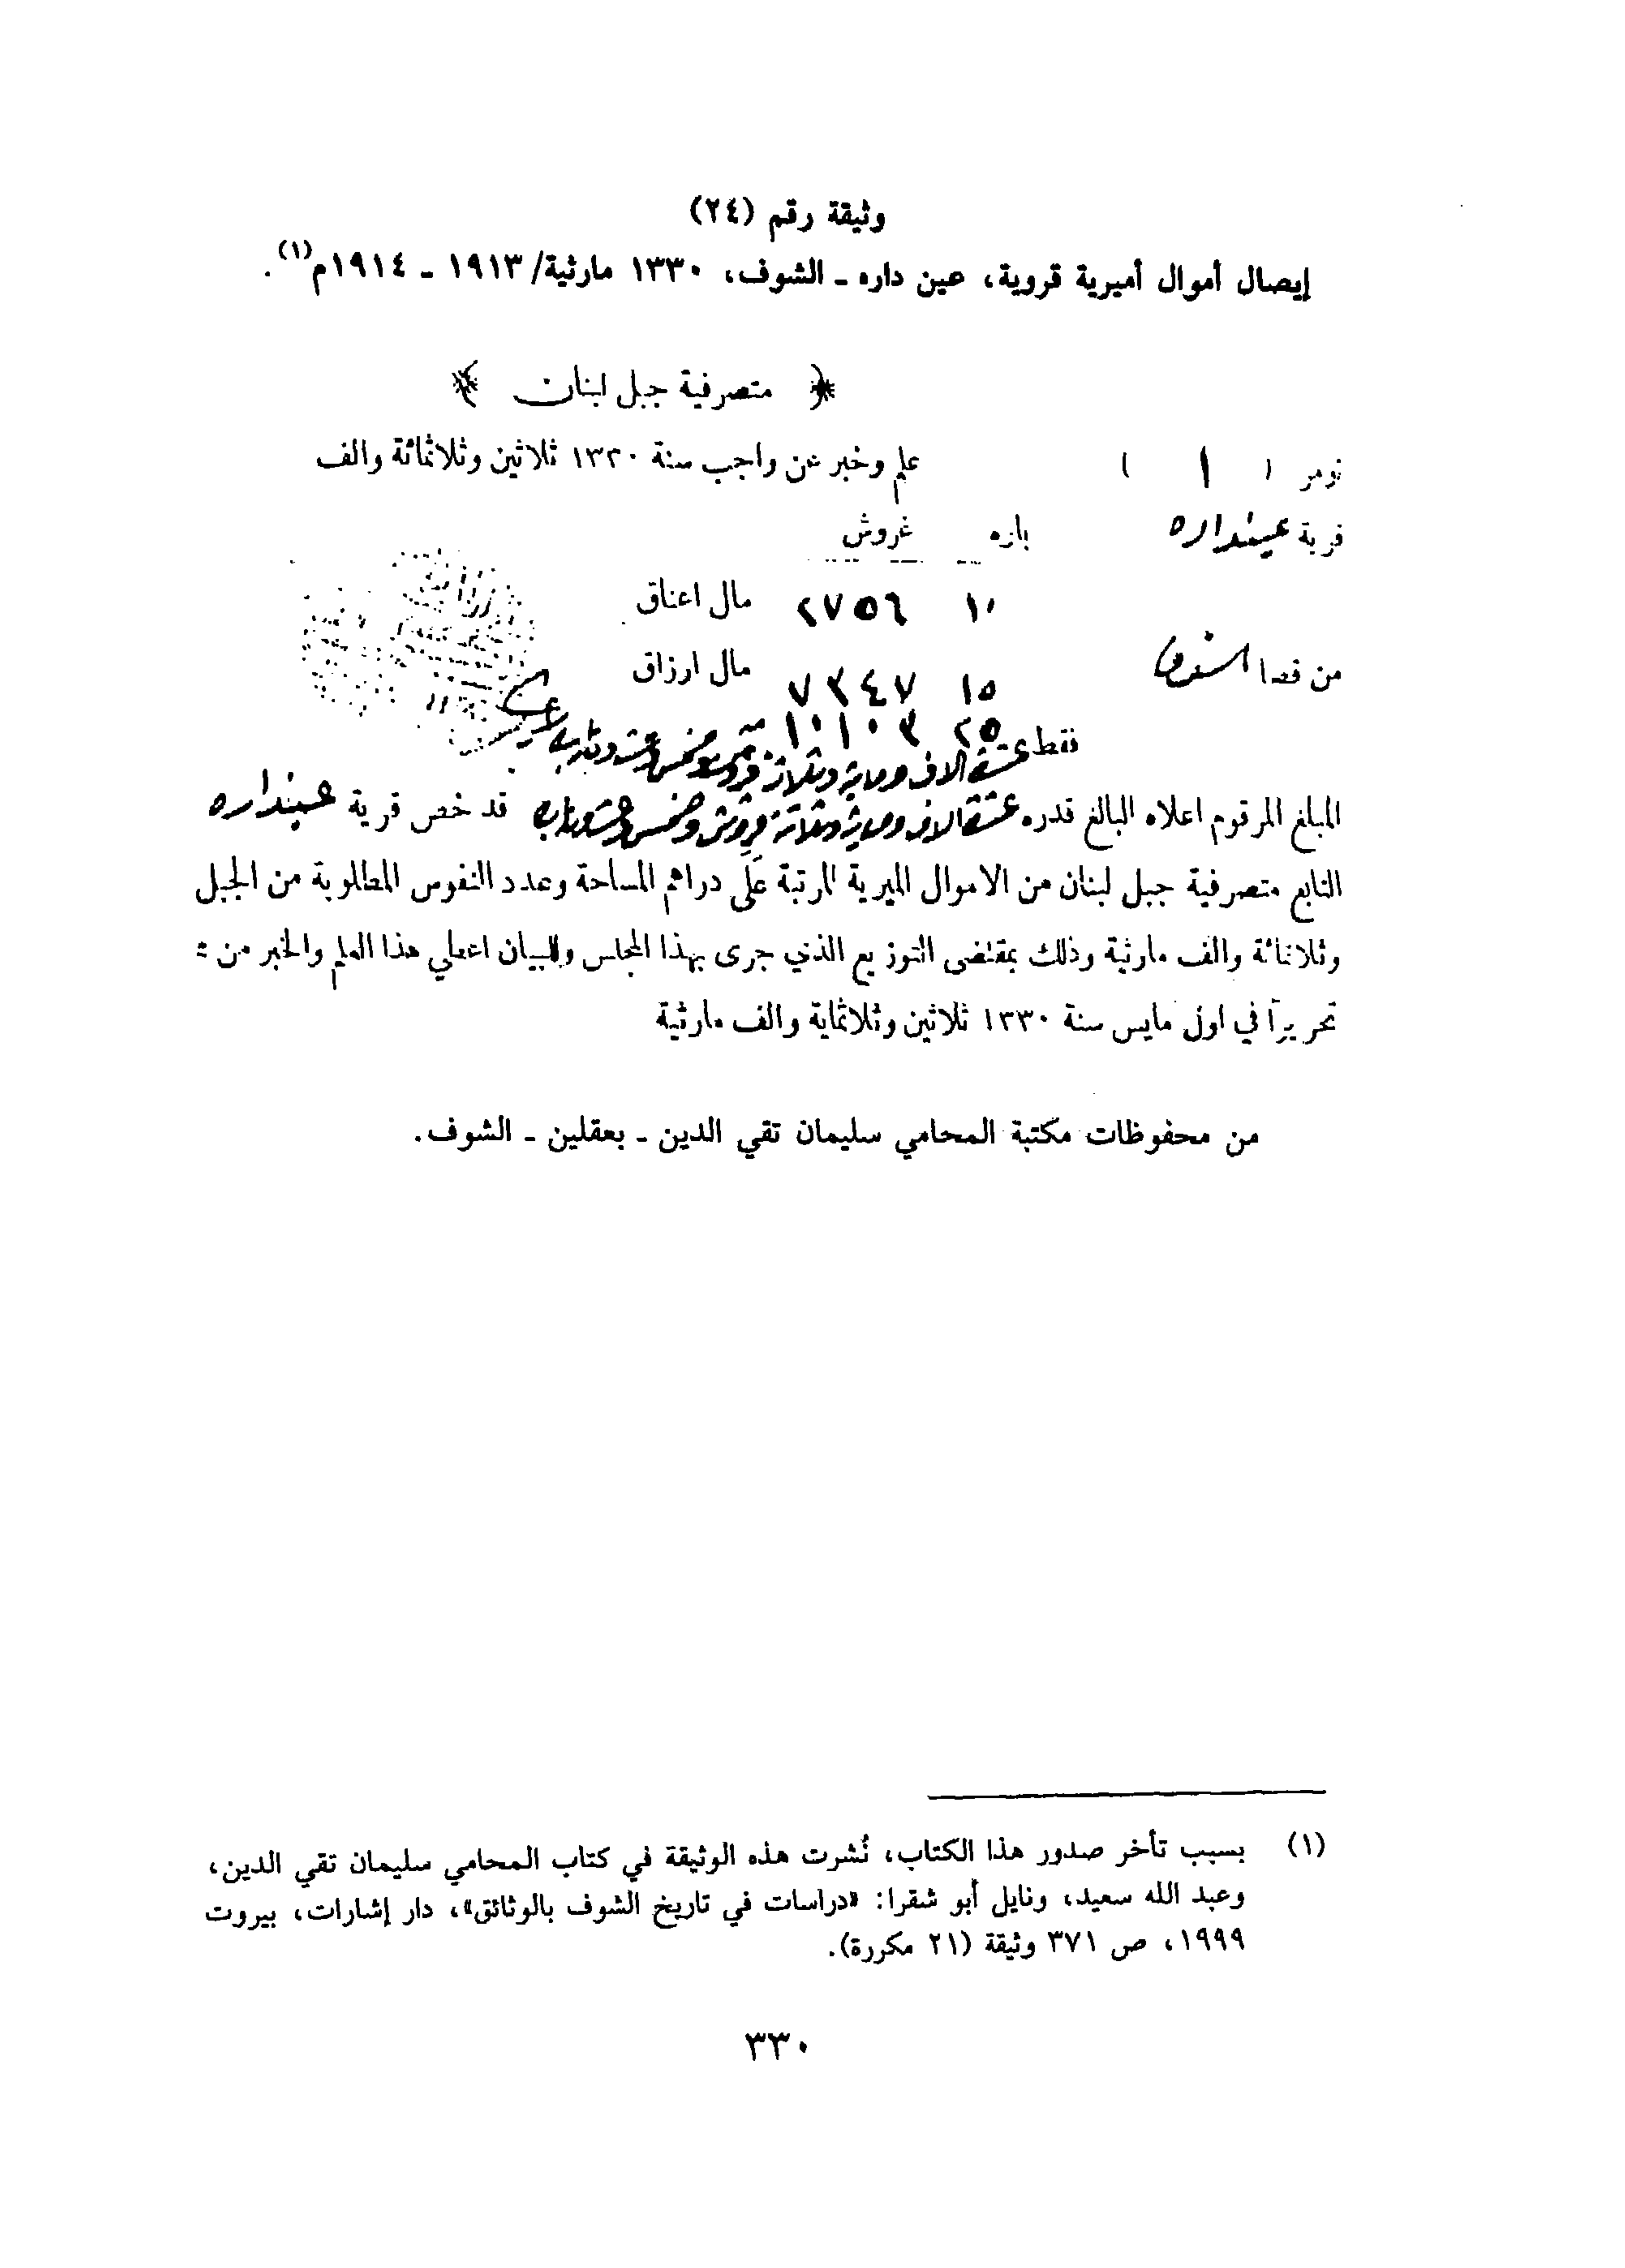 وثيقة رقم (٢٤)
إيصال أموال أميرية قروية، عين داره ـ الشوف، ١٣٣٠ مارثية/١٩١٣ ـ ١٩١٤م(١).
﴿ متصرفية جبل لبنان ﴾
نومر ( ١ ) علم وخبر عن واجب سنة ١٣٣٠ ثلاثين وثلاثمائة والف
قرية عينداره باره غروش
١٠ ٢٧٥٦ مال اعناق
من قضا الشوف ١٥ ٧٣٤٧ مال ارزاق
٢٥ ١٠١٠٣
فقط عشرة الاف وماية وثلاثة قروش وخمس وعشرون باره
المبلغ المرقوم اعلاه البالغ قدره عشرة الاف وماية وثلاثة قروش وخمس وعشرون باره قد خص قرية عينداره
التابع متصرفية جبل لبنان من الاموال الميرية المرتبة على دراهم المساحة وعدد النفوس المطلوبة من الجبل
وثلاثمائة والف مارثية وذلك بمقتضى التوزيع الذي جرى بهذا المجلس وللبيان اعطي هذا العلم والخبر من
تحريراً في اول مايس سنة ١٣٣٠ ثلاثين وثلاثماية والف مارثية
من محفوظات مكتبة المحامي سليمان تقي الدين ـ بعقلين ـ الشوف.
(١) بسبب تأخر صدور هذا الكتاب، نُشرت هذه الوثيقة في كتاب المحامي سليمان تقي الدين،
وعبد الله سعيد، ونايل أبو شقرا: «دراسات في تاريخ الشوف بالوثائق»، دار إشارات، بيروت
١٩٩٩، ص ٣٧١ وثيقة (٢١ مكررة).
٣٣٠